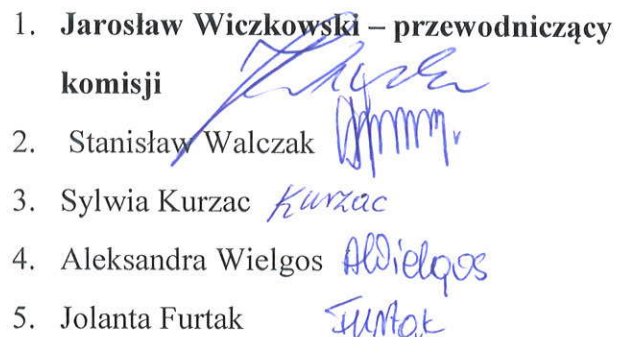 1. Jarosław Wiczkowski – przewodniczący
komisji
2. Stanisław Walczak
3. Sylwia Kurzac Kurzac
4. Aleksandra Wielgos AWielgos
5. Jolanta Furtak Furtak